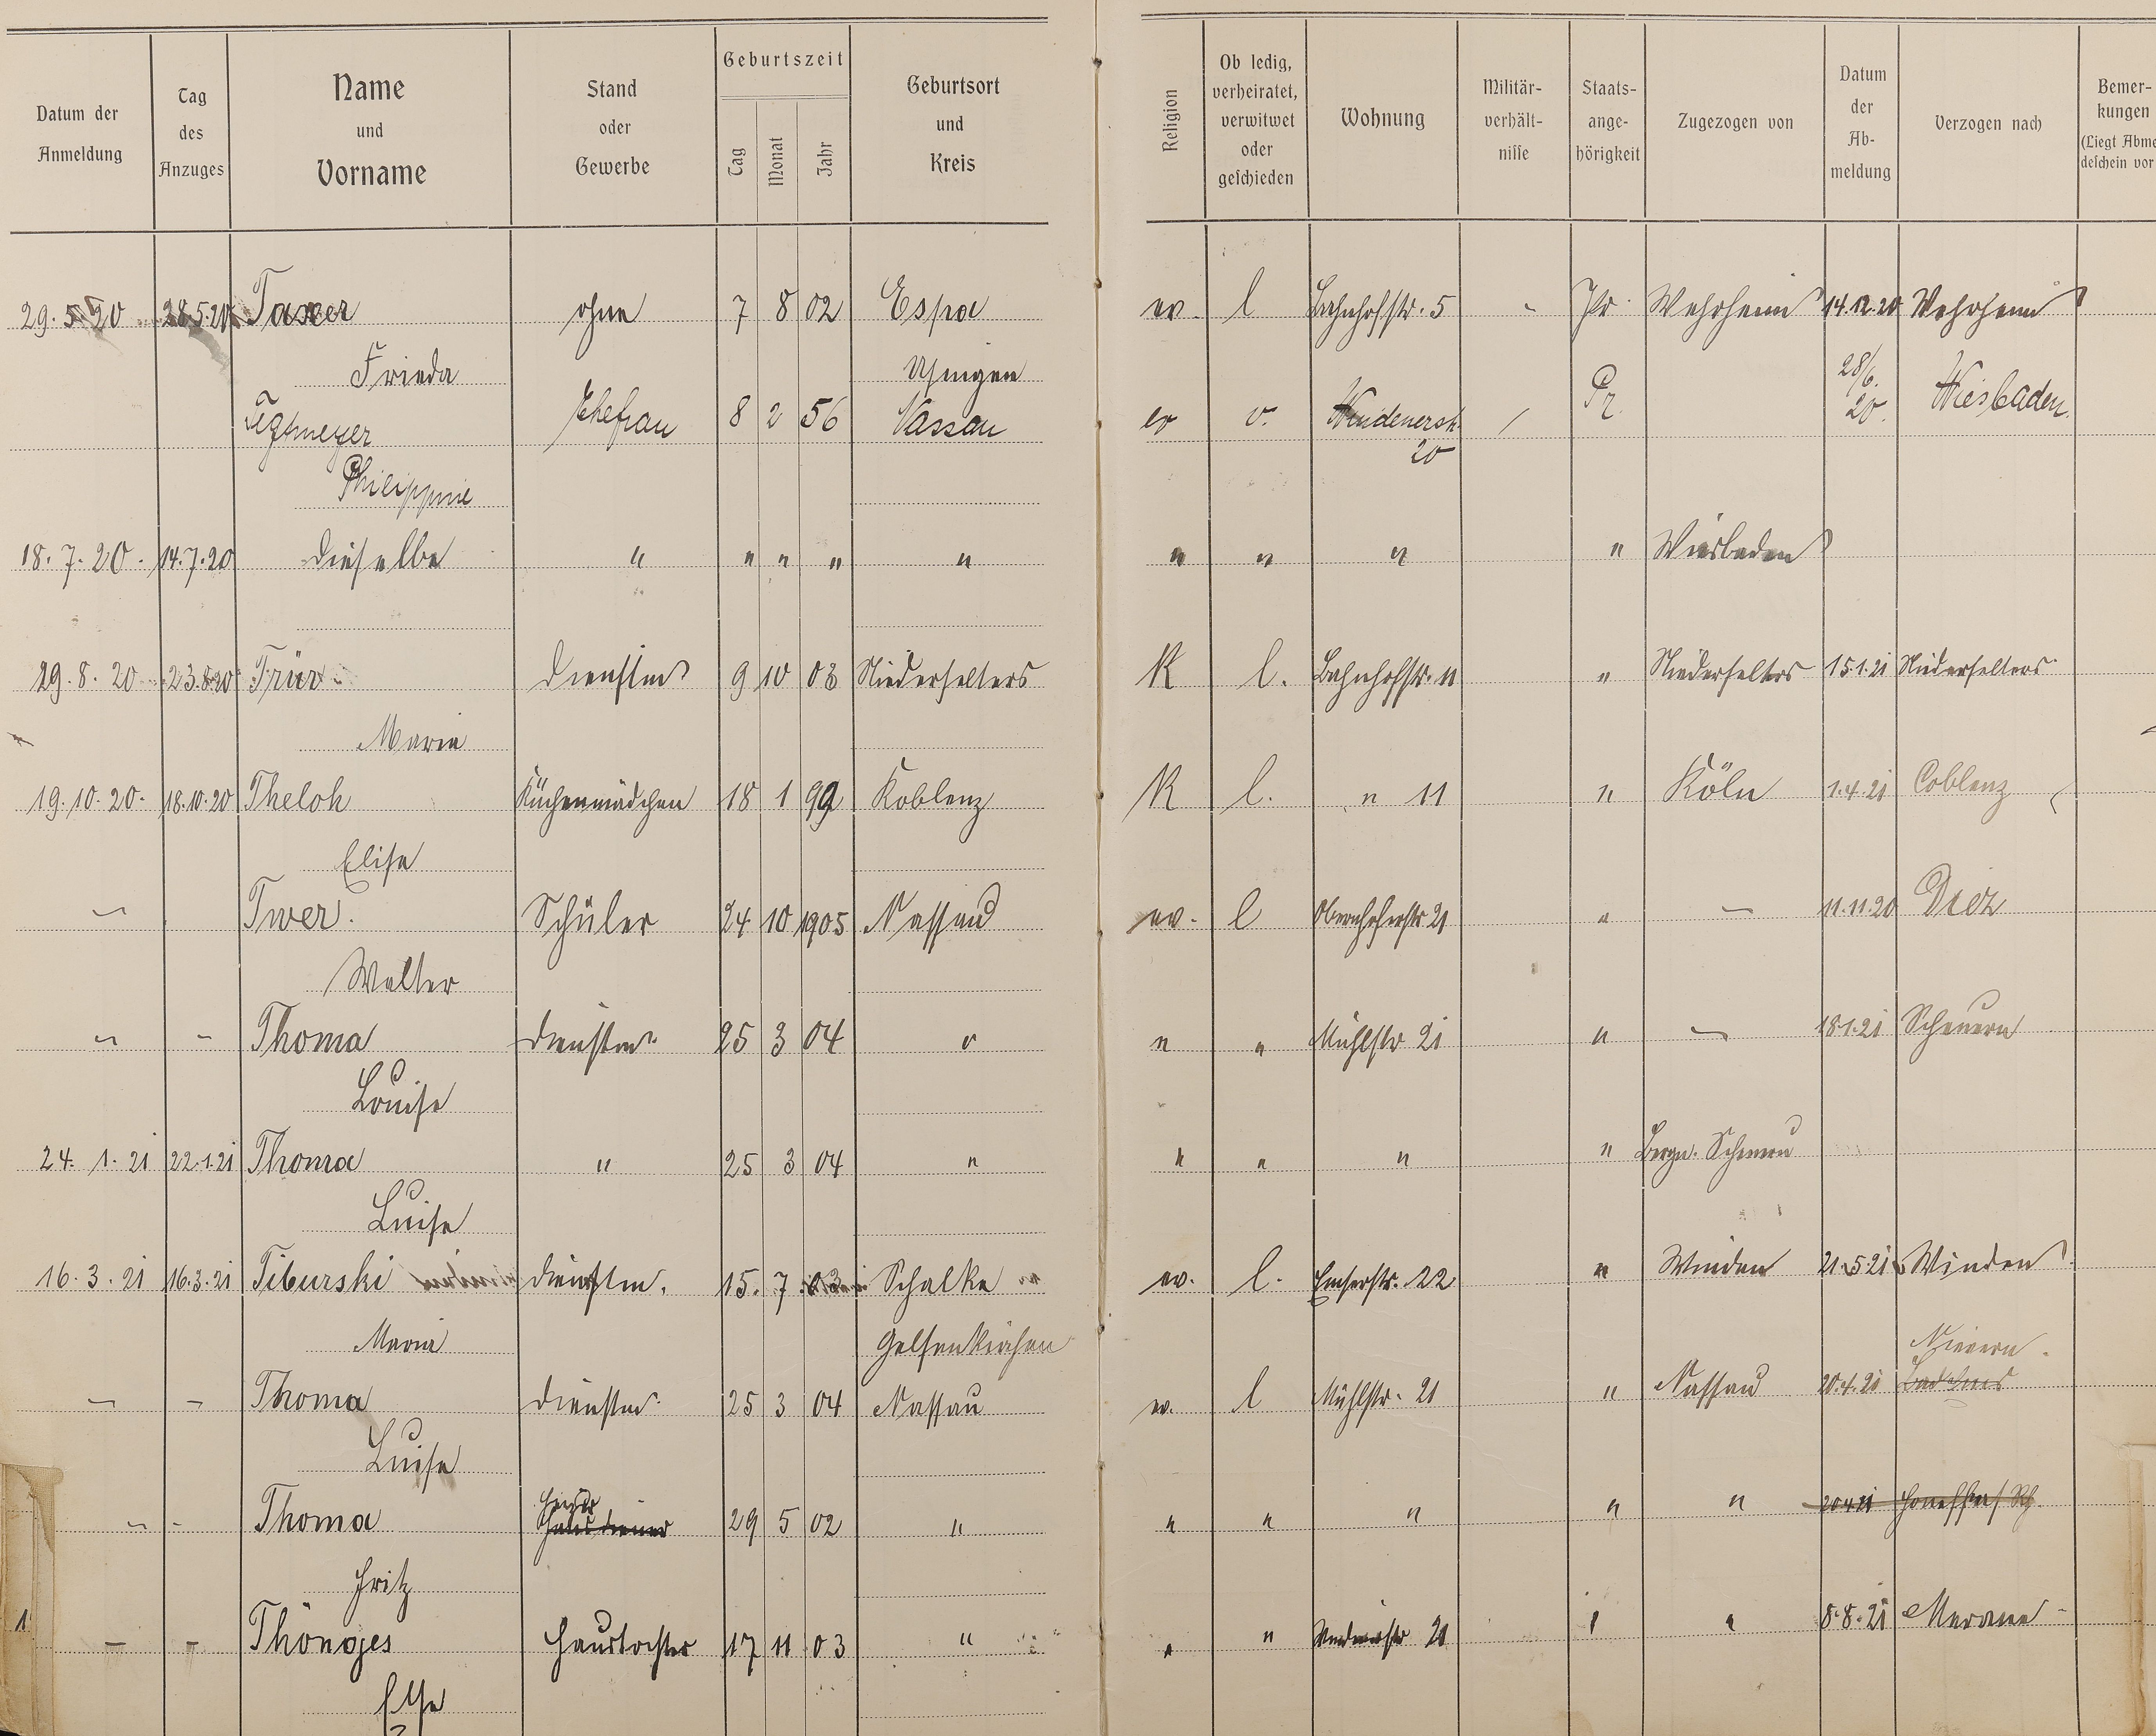 Datum der Anmeldung | Tag des Anzuges | Name und Vorname | Stand oder Gewerbe | Geburtszeit Tag Monat Jahr | Geburtsort und Kreis | Religion | Ob ledig, verheiratet, verwitwet oder geschieden | Wohnung | Militär-verhält-nisse | Staats-ange-hörigkeit | Zugezogen von | Datum der Ab-meldung | Verzogen nach | Bemer-kungen (Liegt Abme deschein vor
29.5.20 28.5.20 Taxer ohne 7 8 02 Espa ev. l Bahnhofstr. 5 - Pr. Wehrheim 14.12.20 Wehrheim
Frieda Usingen
Tegtmeyer Ehefrau 8 2 56 Nassau ev v. Windenerstr. 20 / Pr. 28/6. 20. Wiesbaden.
Philippine
18.7.20. 14.7.20 Dieselbe " " " " " " " " " Wiesbaden
29.8.20 23.8.20 Trür Dienstm 9 10 03 Niederselters K l. Bahnhofstr. 11 " Niederselters 15.1.21 Niederselters
Maria
19.10.20. 18.10.20 Theloh Küchenmädchen 18 1 99 Koblenz K l. " 11 " Köln 1.4.21 Coblenz
Elise
- Twer. Schüler 24 10 1905 Nassau ev. l Obernhoferstr 21 " - 11.11.20 Diez
Walter
- - Thoma Dienstm. 25 3 04 " " " Mühlstr 21 " - 18.1.21 Scheuern
Louise
24. 1. 21 22.1.21 Thoma " 25 3 04 " " " " " Bergn. Scheuern
Luise
16.3.21 16.3.21 Tiburski Dienstm. 15. 7 03 Schalke ev. l. Emserstr. 22 " Winden 21.5.21 Winden
Maria Gelsenkirchen
- - Thoma Dienstm. 25 3 04 Nassau ev. l Mühlstr. 21 " Nassau 20.4.21 Nievern. Bad Ems
Luise
- - Thoma Hausdiener 29 5 02 " " " " " " 20.4.21
Fritz
- - Thönges Haustochter 17 11 03 " " " Windenerstr 21 " " 8.8.21 Merane
Else